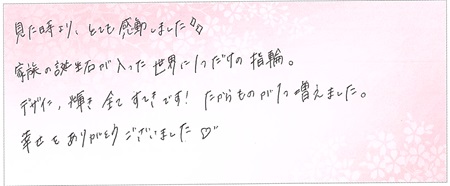 見た時より、とても感動しました♪♪
家族の誕生石が入った世界に1つだけの指輪。
デザイン、輝き全てすてきです！たからものが1つ増えました。
幸せをありがとうございました♡